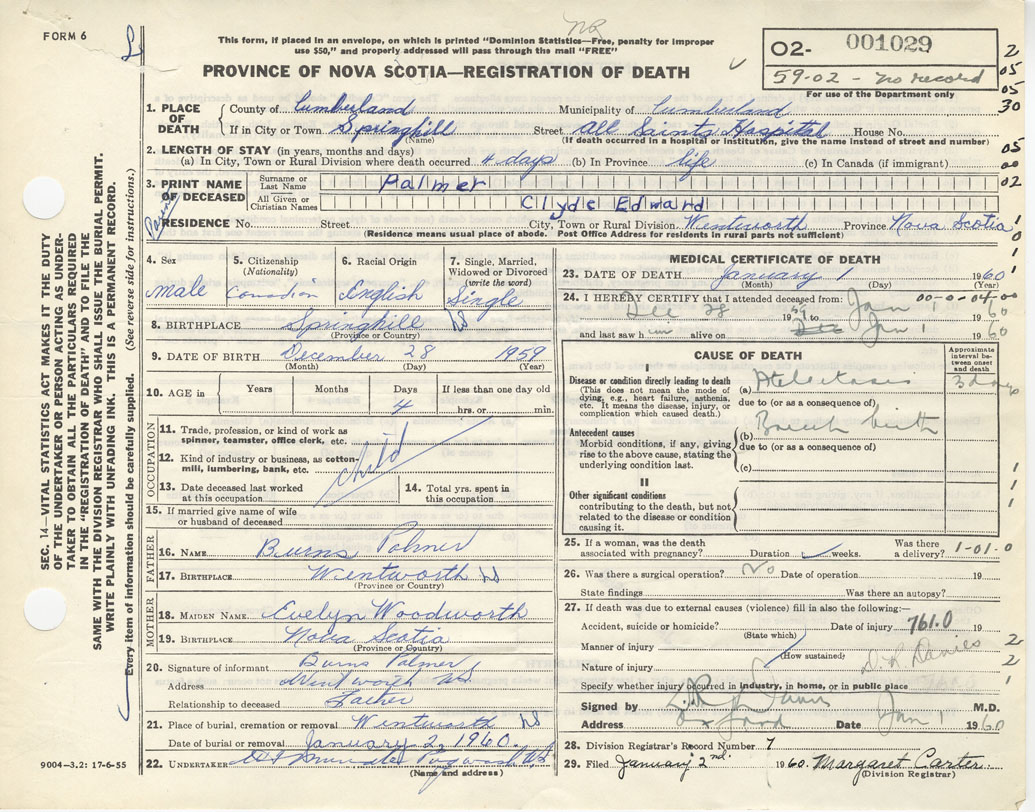 FORM 6
NR
This form, if placed in an envelope, on which is printed "Dominion Statistics—Free, penalty for improper
use $50," and properly addressed will pass through the mail "FREE"
PROVINCE OF NOVA SCOTIA—REGISTRATION OF DEATH
02- 001029
59-02 - no record
For use of the Department only
2
05
05
30
05
00
02
1
0
1
SEC. 14—VITAL STATISTICS ACT MAKES IT THE DUTY
OF THE UNDERTAKER OR PERSON ACTING AS UNDER-
TAKER TO OBTAIN ALL THE PARTICULARS REQUIRED
IN THE "REGISTRATION OF DEATH" AND FILE THE
SAME WITH THE DIVISION REGISTRAR WHO SHALL ISSUE THE BURIAL PERMIT.
WRITE PLAINLY WITH UNFADING INK. THIS IS A PERMANENT RECORD.
Every item of information should be carefully supplied. (See reverse side for instructions.)
1. PLACE OF DEATH
County of Cumberland Municipality of Cumberland
If in City or Town Springhill Street All Saints Hospital House No.
(Name) (If death occurred in a hospital or institution, give the name instead of street and number)
2. LENGTH OF STAY (in years, months and days)
(a) In City, Town or Rural Division where death occurred 4 days (b) In Province life (c) In Canada (if immigrant)
3. PRINT NAME OF DECEASED
Surname or Last Name Palmer
All Given or Christian Names Clyde Edward
RESIDENCE No. Street City, Town or Rural Division Wentworth Province Nova Scotia
(Residence means usual place of abode. Post Office Address for residents in rural parts not sufficient)
4. Sex
male
5. Citizenship
(Nationality)
Canadian
6. Racial Origin
English
7. Single, Married,
Widowed or Divorced
(write the word)
Single
8. BIRTHPLACE Springhill NS
(Province or Country)
9. DATE OF BIRTH December 28 1959
(Month) (Day) (Year)
10. AGE in
Years
Months
Days
4
If less than one day old
hrs. or min.
OCCUPATION
11. Trade, profession, or kind of work as
spinner, teamster, office clerk, etc.
12. Kind of industry or business, as cotton-
mill, lumbering, bank, etc.
child
13. Date deceased last worked
at this occupation
14. Total yrs. spent in
this occupation
15. If married give name of wife
or husband of deceased
FATHER
16. NAME Burns Palmer
17. BIRTHPLACE Wentworth NS
(Province or Country)
MOTHER
18. MAIDEN NAME Evelyn Woodworth
19. BIRTHPLACE Nova Scotia
(Province or Country)
20. Signature of informant Burns Palmer
Address Wentworth NS
Relationship to deceased Father
21. Place of burial, cremation or removal Wentworth NS
Date of burial or removal January 2, 1960.
22. UNDERTAKER Pugwash NS
(Name and address)
9004-3.2: 17-6-55
MEDICAL CERTIFICATE OF DEATH
23. DATE OF DEATH January 1 1960
(Month) (Day) (Year)
00-0-04-00
24. I HEREBY CERTIFY that I attended deceased from:
Dec 28 1959 to Jan 1 1960
and last saw him alive on Jan 1 1960
CAUSE OF DEATH
Approximate
interval be-
tween onset
and death
I
Disease or condition directly leading to death
(This does not mean the mode of
dying, e.g., heart failure, asthenia,
etc. It means the disease, injury, or
complication which caused death.)
(a) Atelectasis 3 days
due to (or as a consequence of)
Antecedent causes
Morbid conditions, if any, giving
rise to the above cause, stating the
underlying condition last.
(b) Breech birth
due to (or as a consequence of)
(c)
II
Other significant conditions
contributing to the death, but not
related to the disease or condition
causing it.
6
1
1
1
25. If a woman, was the death
associated with pregnancy? Duration weeks. Was there
a delivery? 1-01.0
26. Was there a surgical operation? No Date of operation 19
State findings Was there an autopsy?
27. If death was due to external causes (violence) fill in also the following:—
Accident, suicide or homicide? Date of injury 761.0 19
(State which)
Manner of injury 2
(How sustained)
D. R. Davies
Nature of injury 2
Specify whether injury occurred in industry, in home, or in public place 1
Signed by D R Davies M.D.
Address Oxford Date Jan 1 1960
28. Division Registrar's Record Number 7
29. Filed January 2nd. 1960. Margaret Carter.
(Division Registrar)